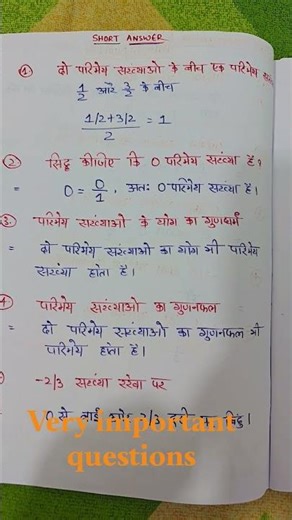 SHORT ANSWER
① दो परिमेय संख्याओं के बीच एक परिमेय
1/2 और 3/2 के बीच
1/2+3/2 / 2 = 1
② सिद्ध कीजिए कि 0 परिमेय संख्या है?
= 0 = 0/1 , अतः 0 परिमेय संख्या है।
3. परिमेय संख्याओं के योग का गुणधर्म
= दो परिमेय संख्याओं का योग भी परिमेय
संख्या होता है।
4. परिमेय संख्याओं का गुणनफल
= दो परिमेय संख्याओं का गुणनफल भी
परिमेय होता है।
-2/3 संख्या रेखा पर
0 से बाईं ओर 2/3 दूरी
Very Important
questions